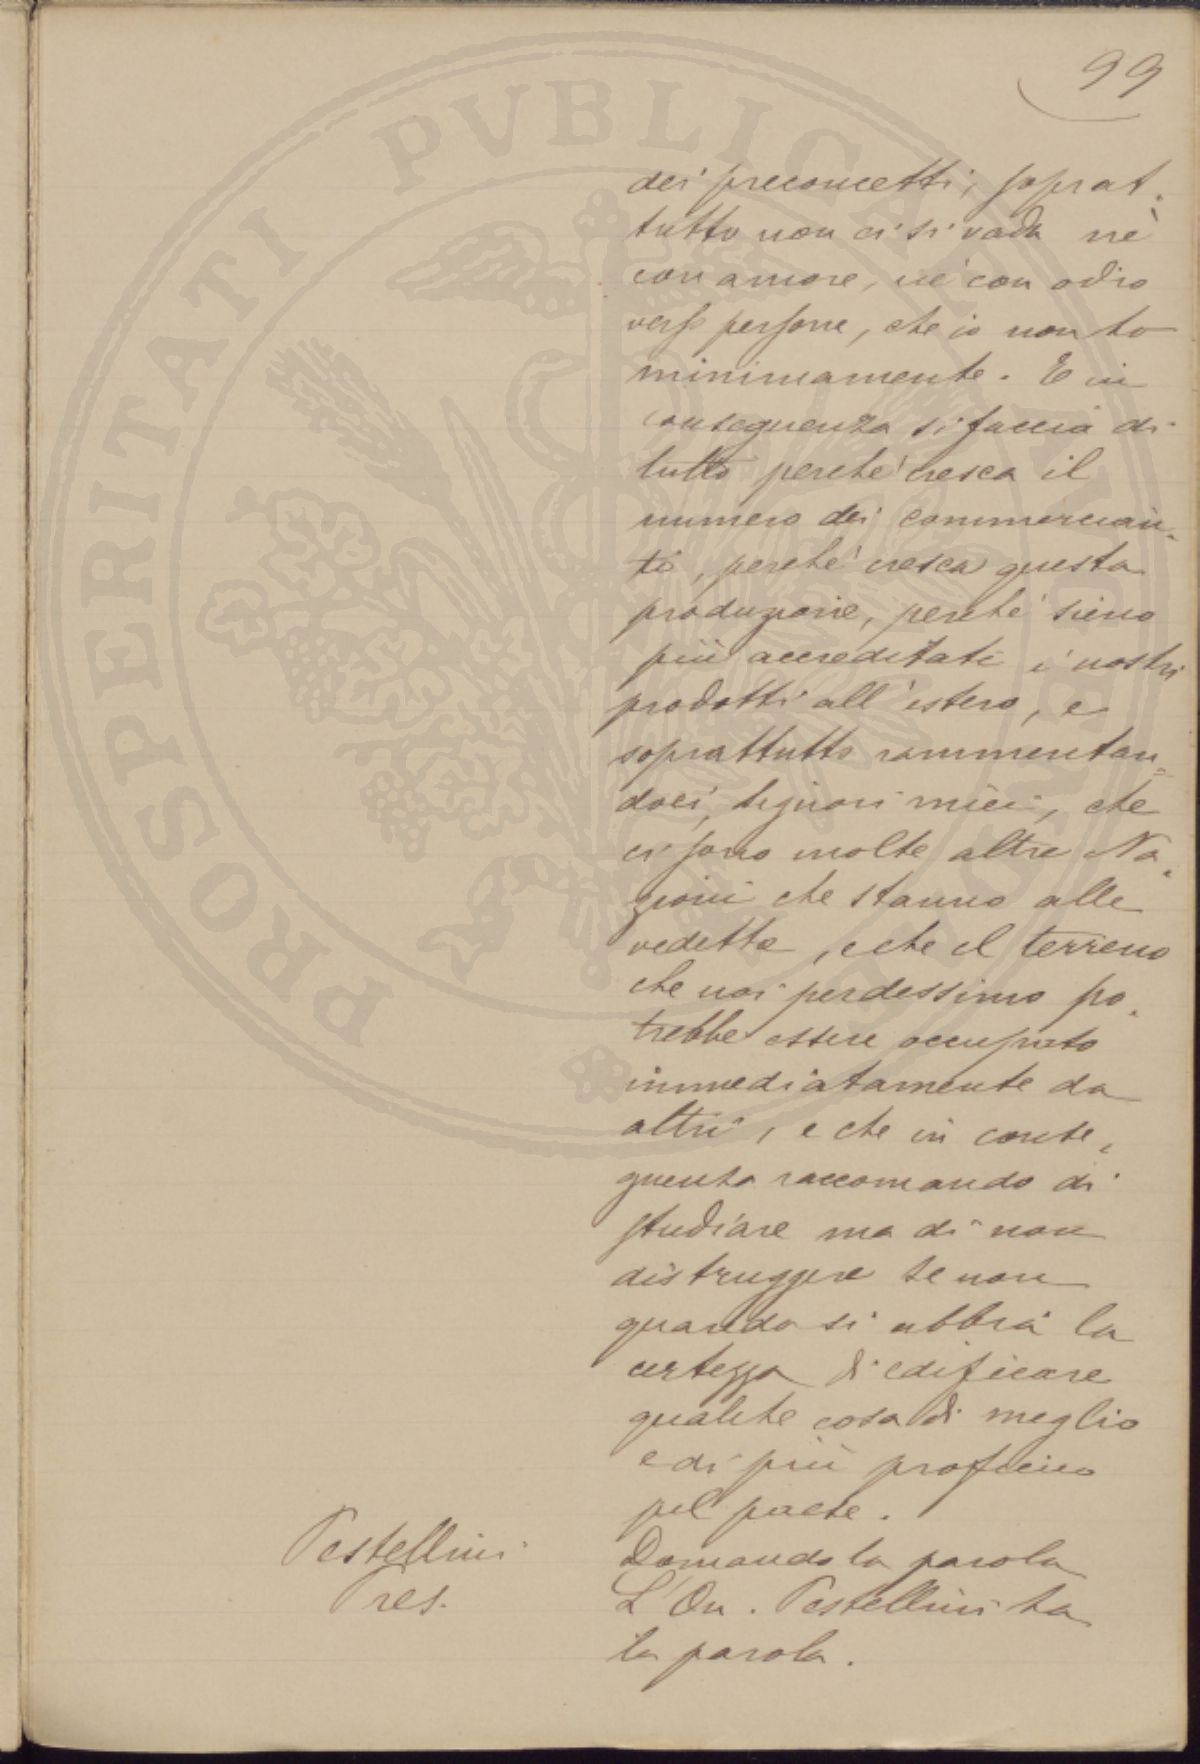 99
dei preconcetti, soprat-
tutto non ci si vada nè
con amore, nè con odio
verso persone, che io non ho
minimamente. E in
conseguenza si faccia di
tutto perchè cresca il
numero dei commercian-
ti, perchè cresca questa
produzione, perchè sieno
più accreditati i nostri
prodotti all'estero, e
soprattutto rammentan=
doci, signori miei, che
ci sono molte altre Na-
zioni che stanno alle
vedette, e che il terreno
che noi perdessimo po-
trebbe essere occupato
immediatamente da
altri, e che in conse-
guenza raccomando di
studiare ma di non
distruggere se non
quando si abbia la
certezza di edificare
qualche cosa di meglio
e di più proficuo
pel paese.
Pestellini Domando la parola
Pres. L'On. Pestellini ha
la parola.
PROSPERITATI PVBLICAE